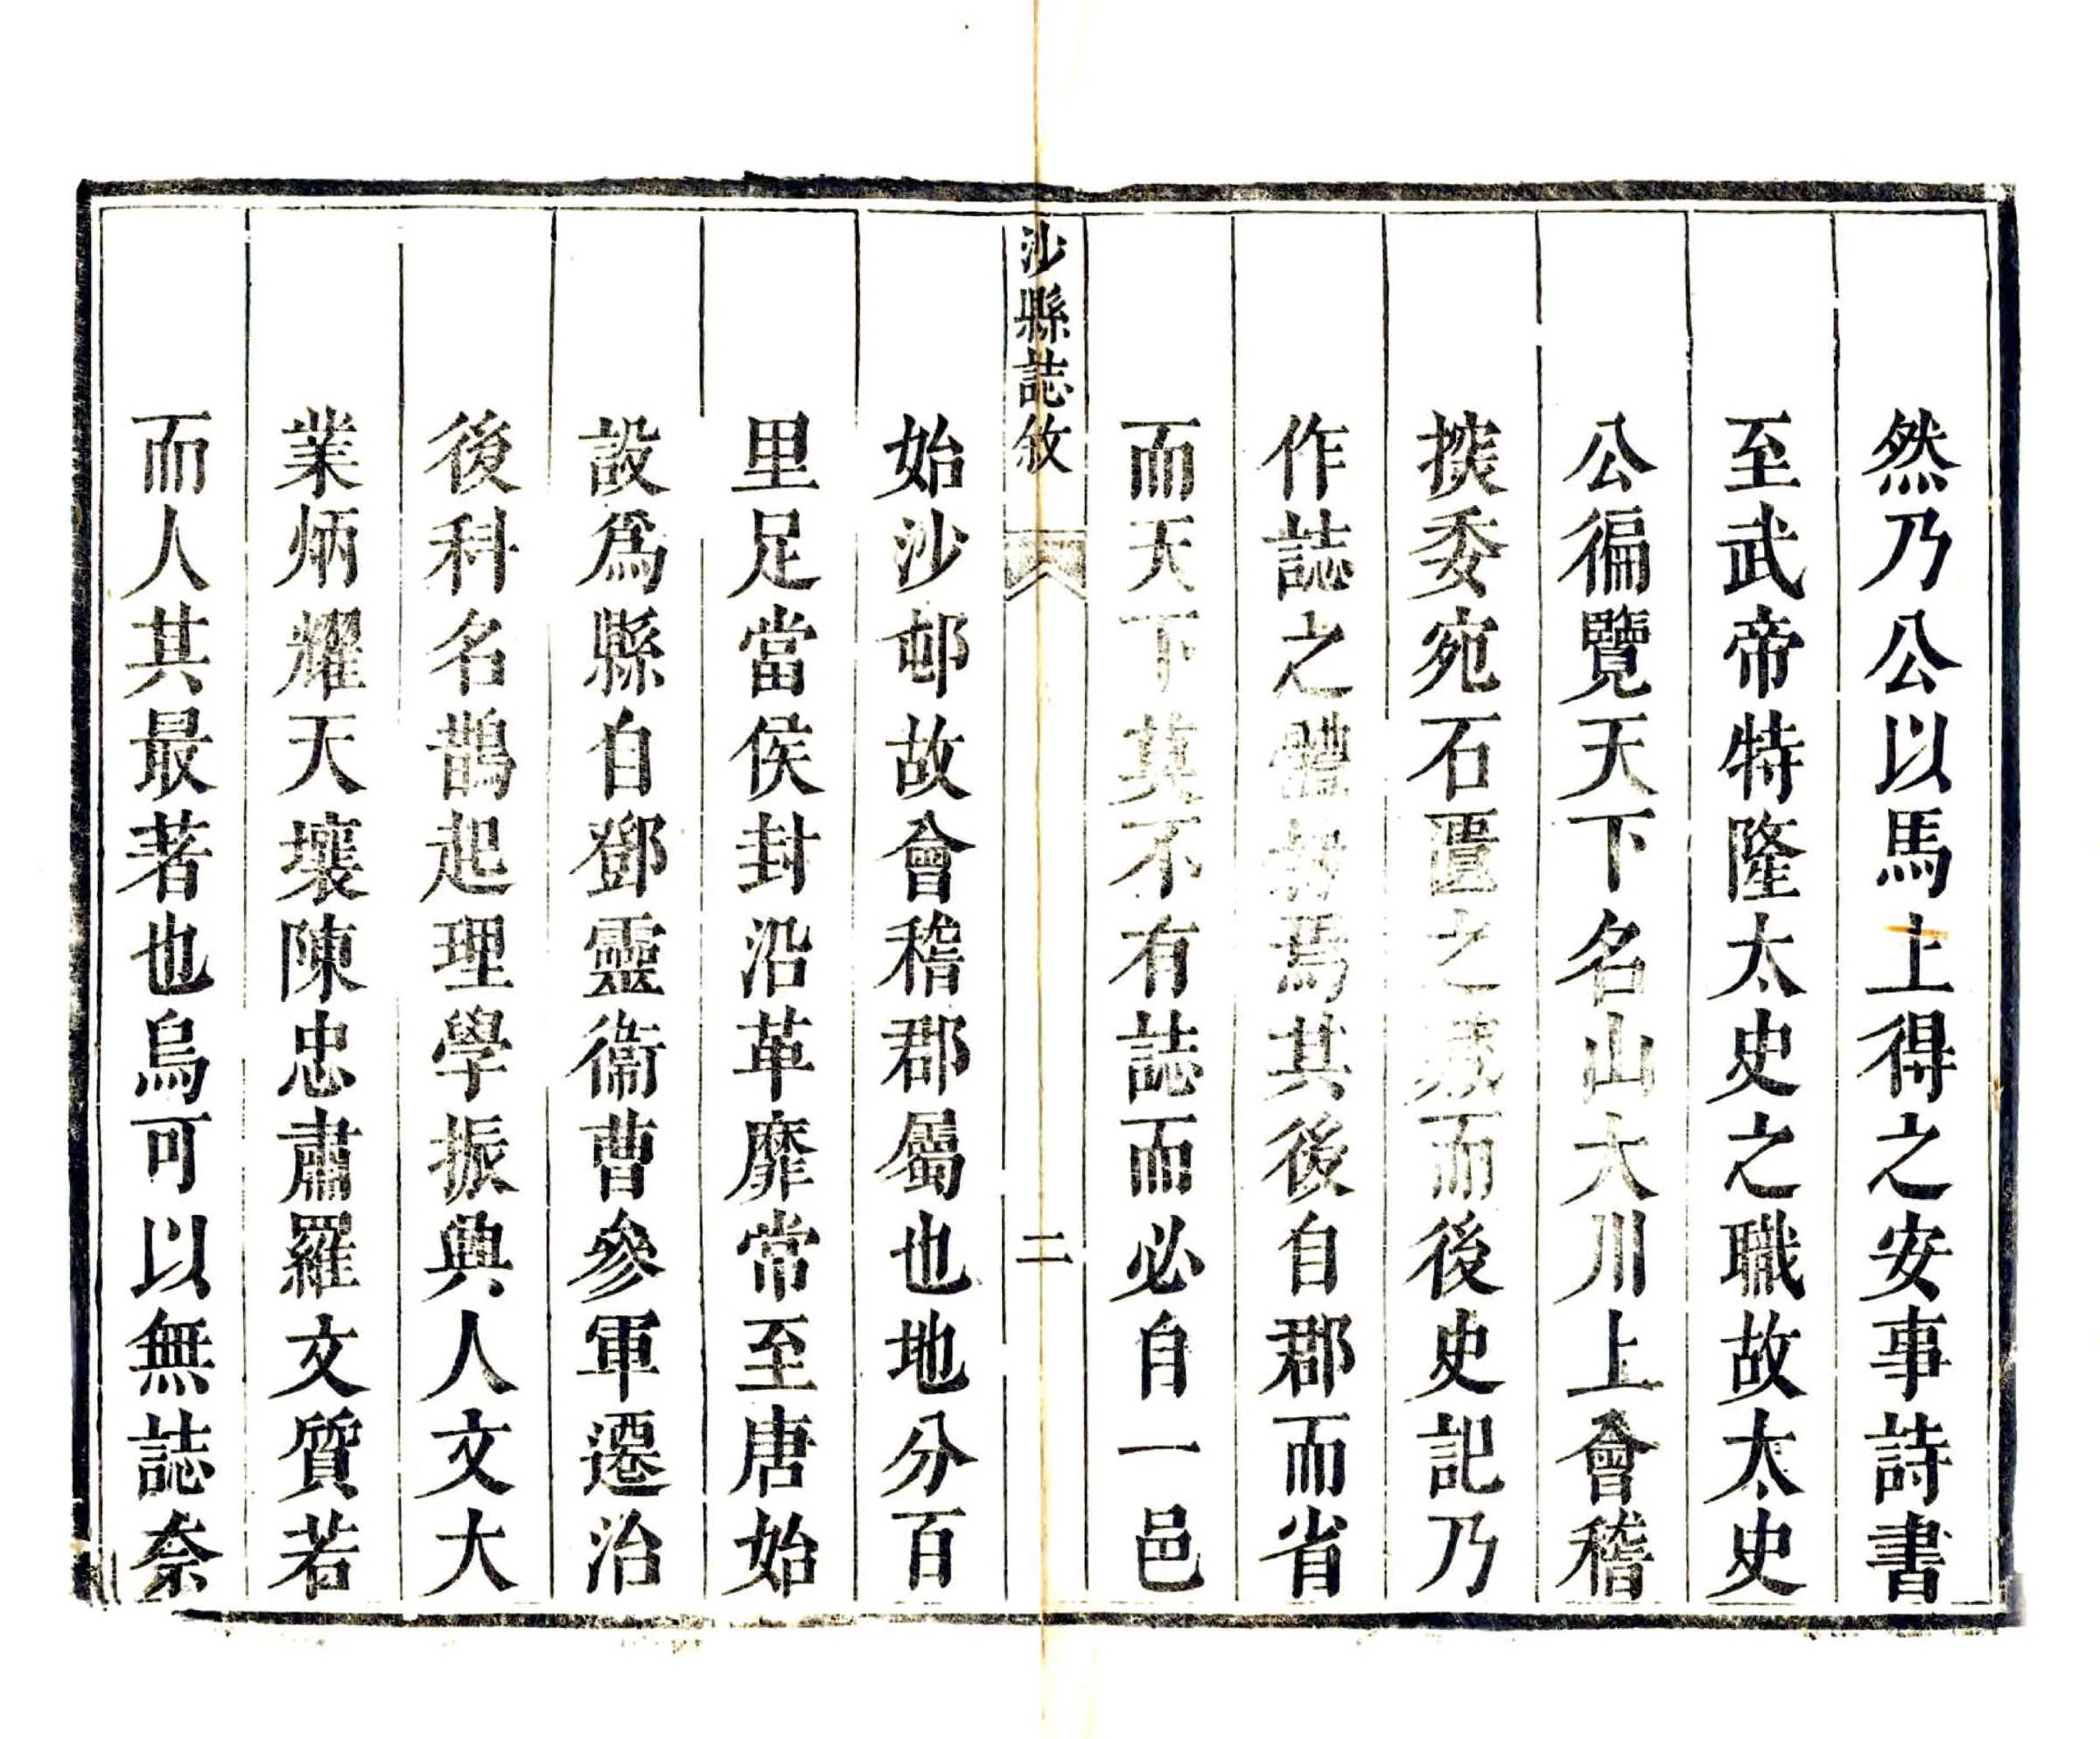 然乃公以馬上得之安事詩書
至武帝特隆太史之職故太史
公徧覽天下名山大川上會稽
探委宛石匱之藏而後史記乃
作誌之體焉其後自郡而省
而天下莫不有誌而必自一邑
沙縣誌敘
二
始沙邨故會稽郡屬也地分百
里足當侯封沿革靡常至唐始
設爲縣自鄧靈衞曹參軍遷治
後科名鵲起理學振興人文大
業炳耀天壤陳忠肅羅文質若
而人其最著也烏可以無誌奈